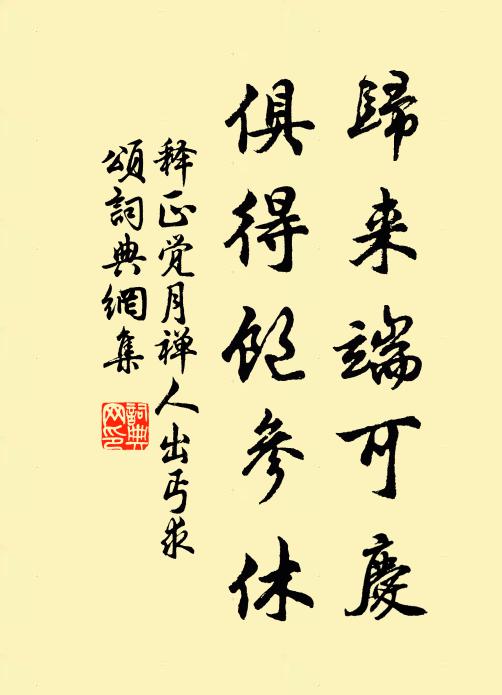 歸来端可慶
俱得飽參休
释正觉月禅人出丐求
頌詞典網集
詞典网印